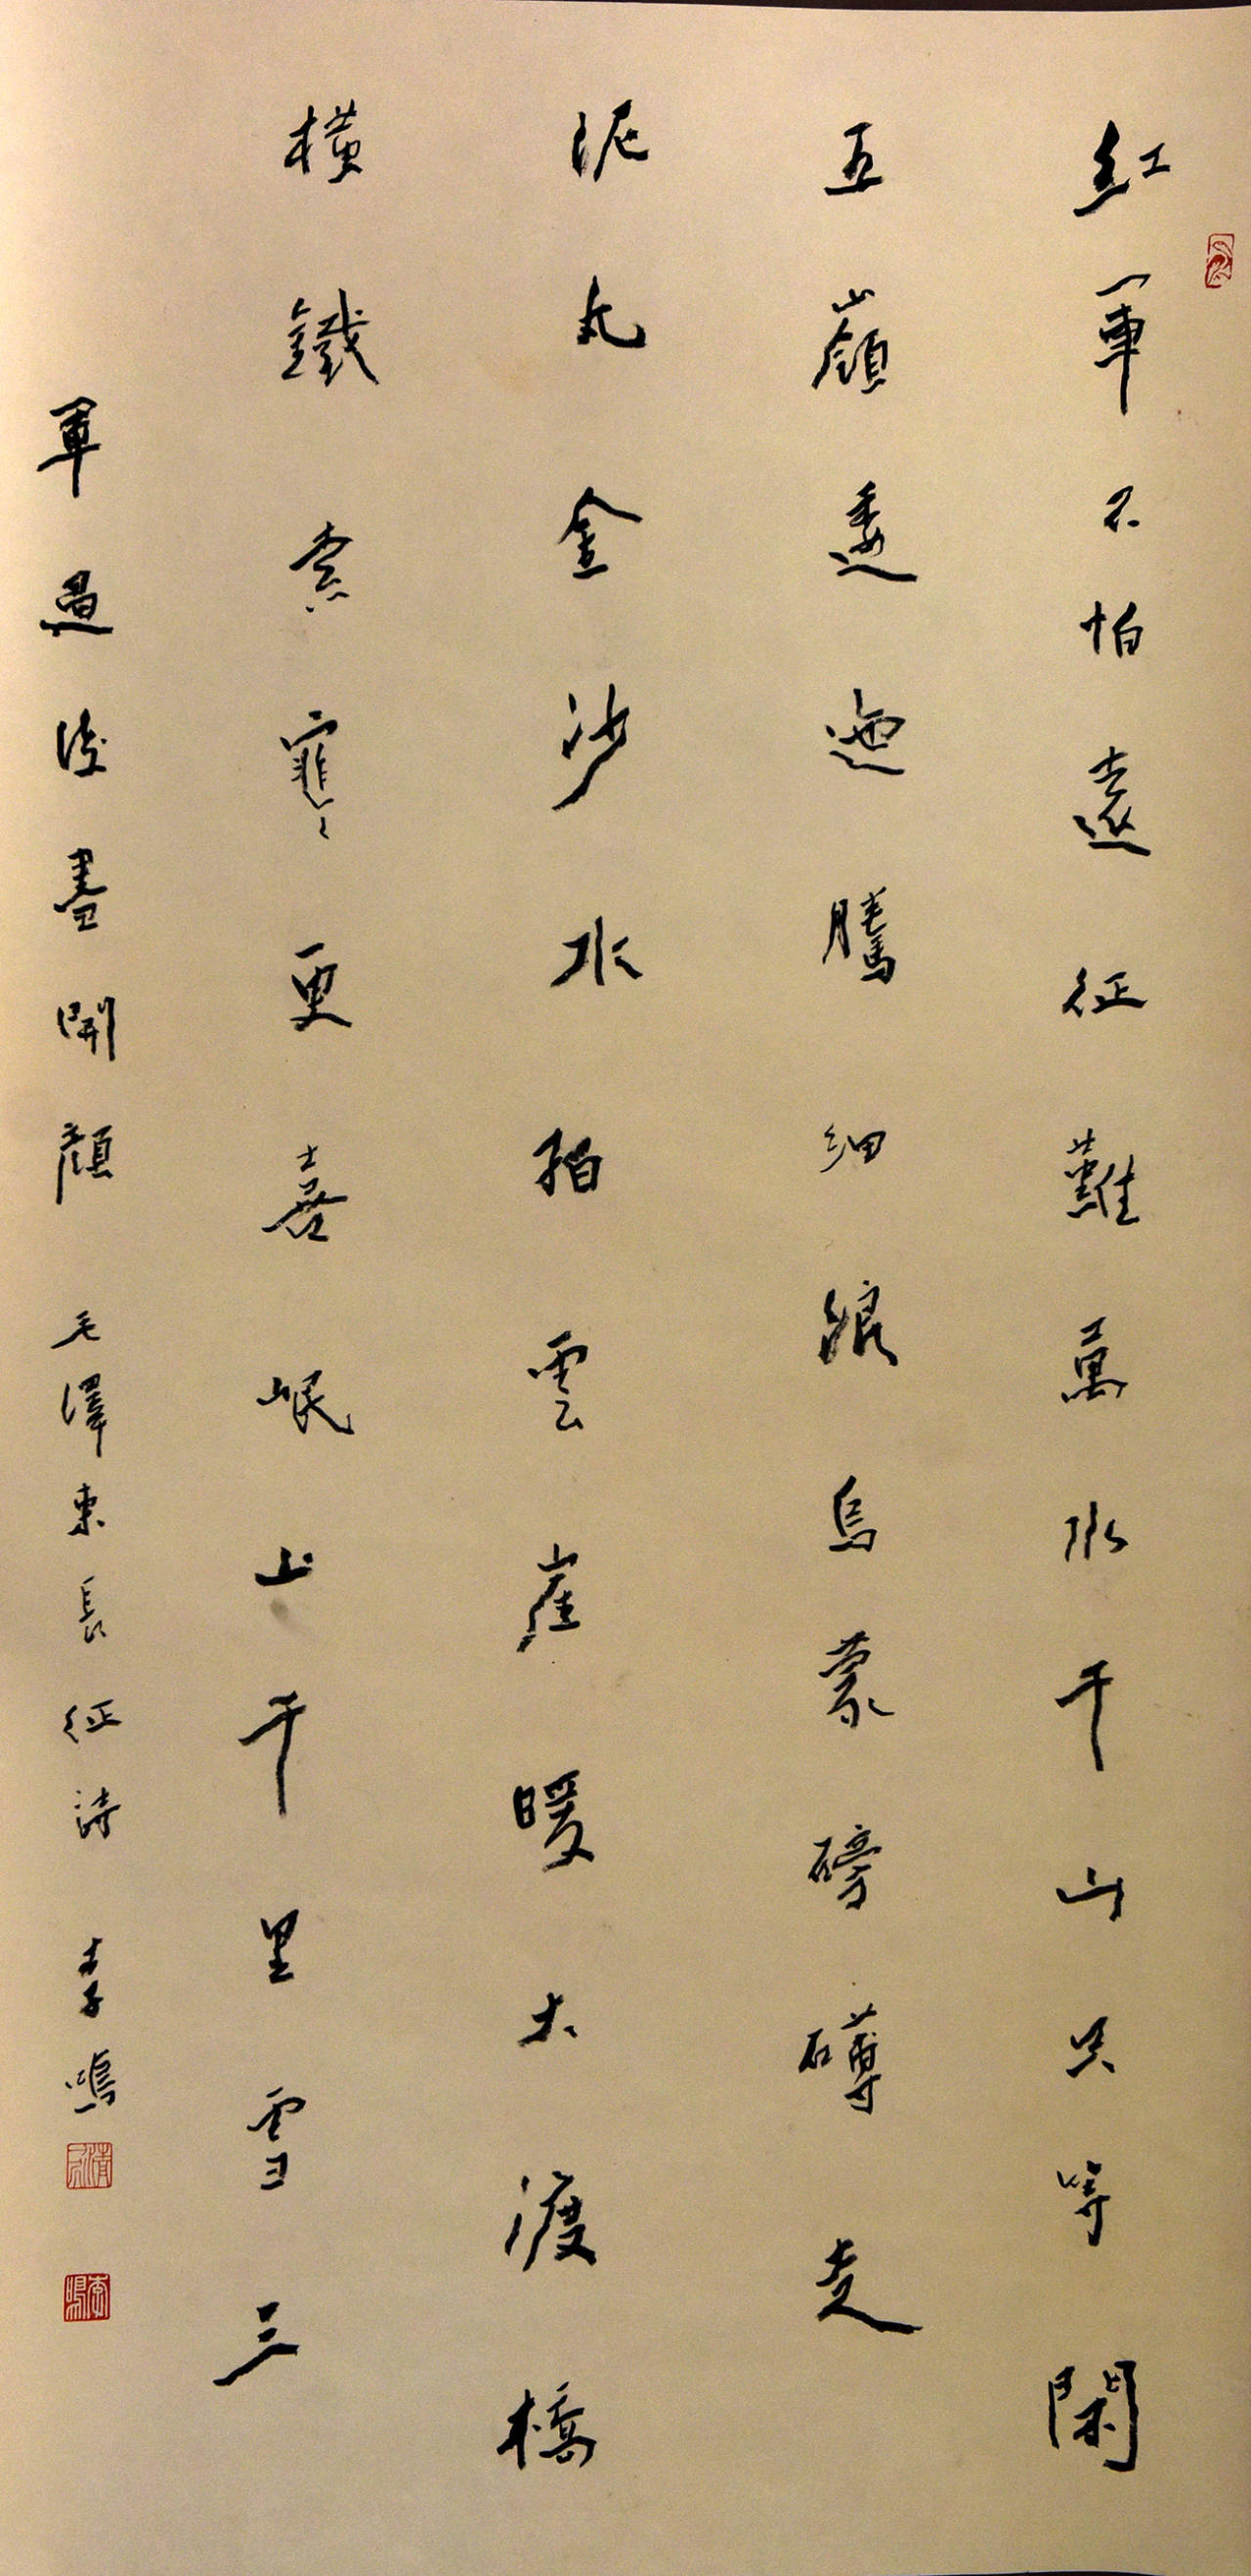 紅軍不怕遠征難萬水千山只等閑
五嶺逶迤騰細浪烏蒙磅礴走
泥丸金沙水拍雲崖暖大渡橋
橫鐵索寒更喜岷山千里雪三
軍過後盡開顔 毛澤東長征詩 李鳴